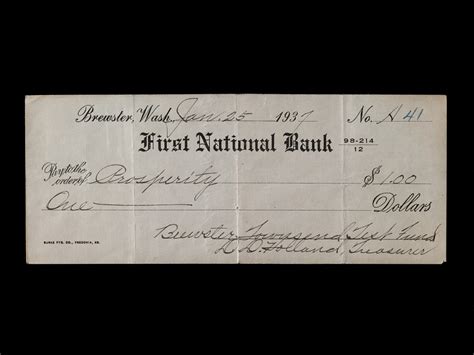 Brewster, Wash. Jan. 25 1937 No. A 41
First National Bank 98-214
12
Pay to the order of Prosperity $1.00
One Dollars
Brewster Townsend Test Fund
BURKE PTG. CO., FREDONIA, KS. Holland Treasurer